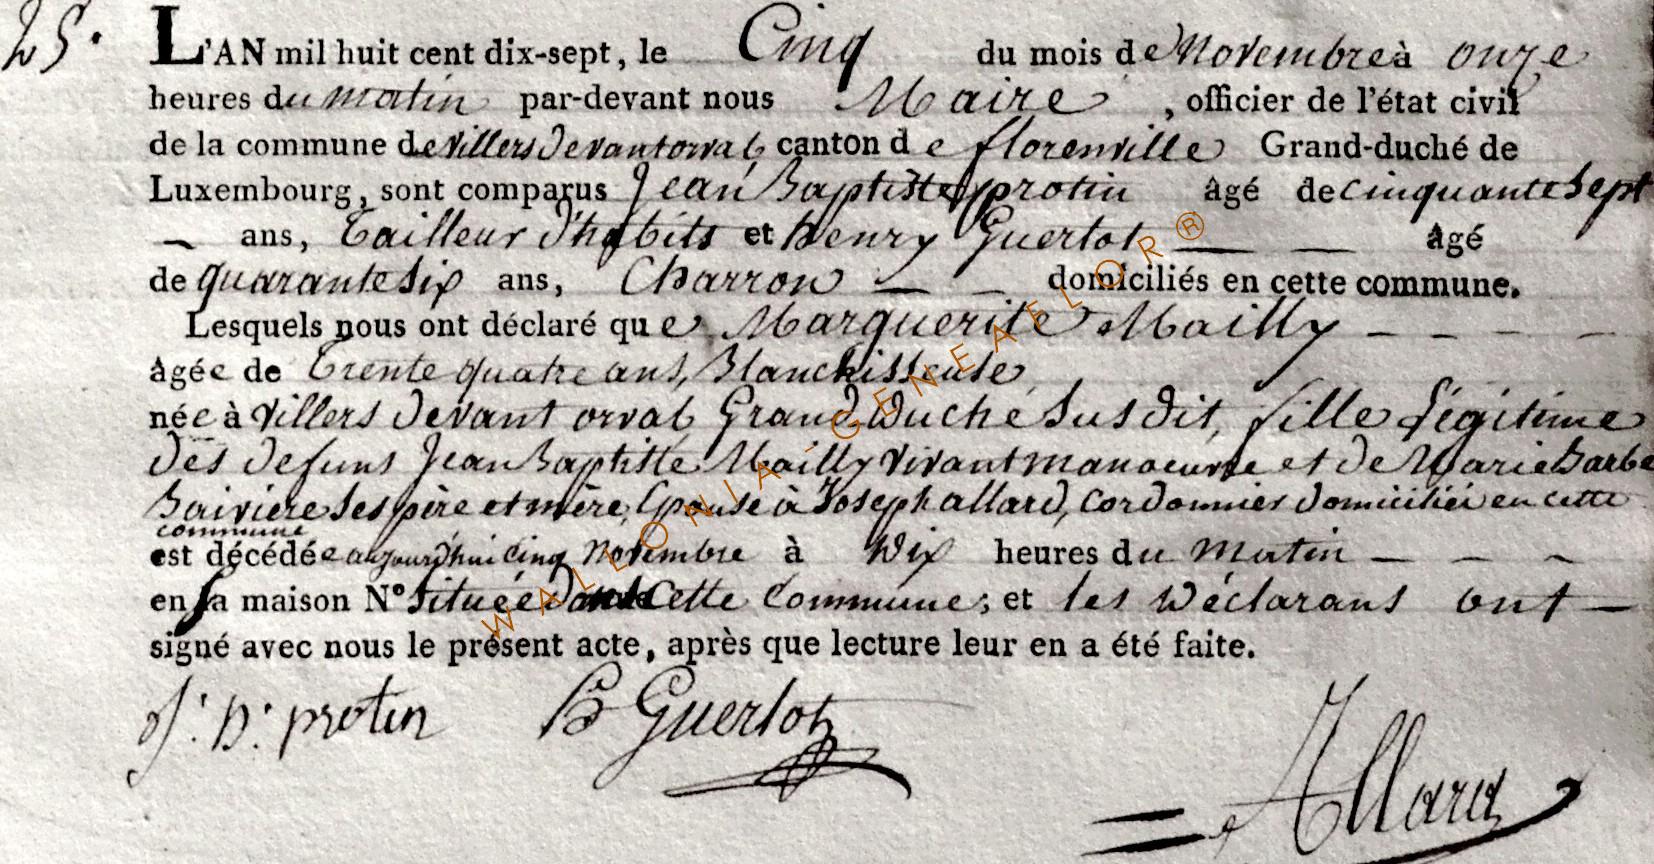 25.
L'AN mil huit cent dix-sept, le Cinq du mois de Novembre à onze
heures du matin par-devant nous Maire, officier de l'état civil
de la commune de villers devant orval canton de florenville Grand-duché de
Luxembourg, sont comparus Jean Baptiste protin âgé de cinquante sept
ans, Tailleur d'habits et henry Guerlot âgé
de quarante six ans, Charron domiciliés en cette commune.
Lesquels nous ont déclaré que Marguerite Mailly
âgée de Trente quatre ans, Blanchisseuse
née à villers devant orval Grand Duché susdit, fille légitime
des defuns Jean Baptiste Mailly vivant manoeuvre et de Marie Barbe
ses père et mère, Epouse à Joseph allard, cordonnier domicilié en cette
commune
est décédée aujourd'hui cinq Novembre à Dix heures du Matin
en sa maison N° située dans Cette Commune; et les Déclarans ont
signé avec nous le présent acte, après que lecture leur en a été faite.
J. B. protin H Guerlot
Allard
WALLONIA-GENEAFLOR®